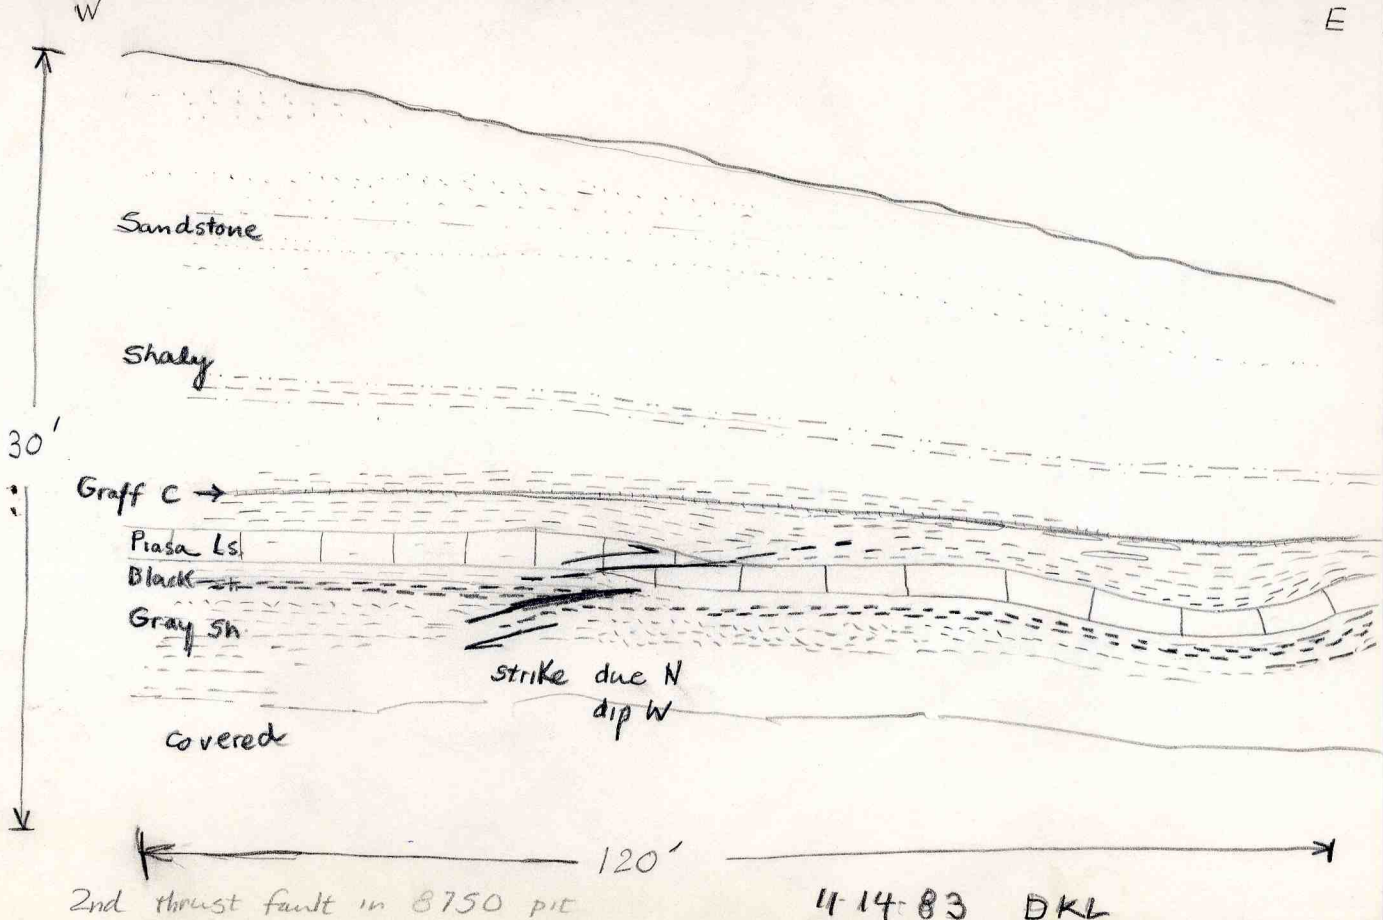 W
E
Sandstone
Shaly
30'
Graff C →
Piasa Ls
Black
Gray Sh
strike due N
dip W
covered
120'
2nd thrust fault in 8750 pit
4-14-83 DKL